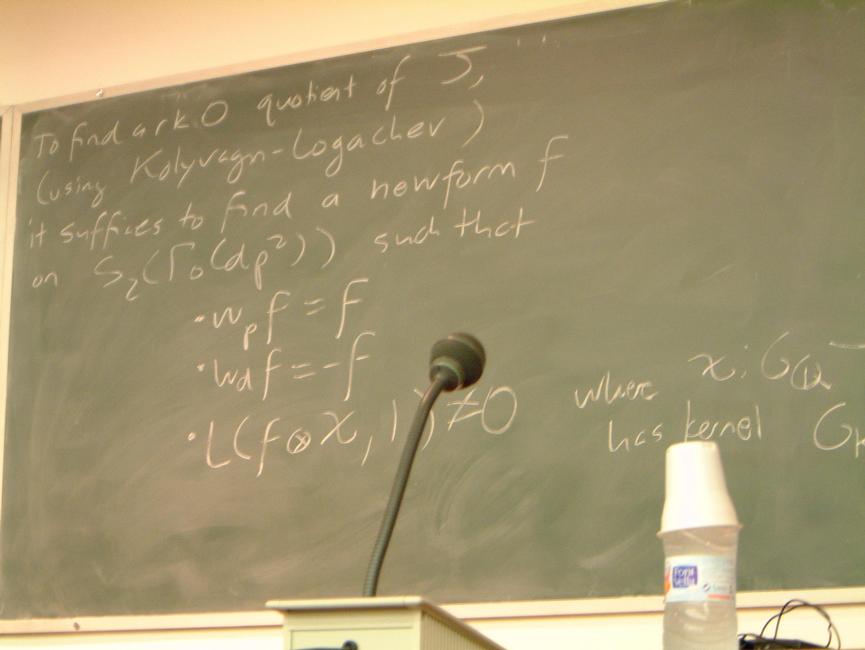 To find a rk 0 quotient of J,
(using Kolyvagn-Logachev)
it suffices to find a newform f
on S₂(Γ₀(dp²)) such that
· w_p f = f
· w_d f = -f
· L(f⊗χ, 1) ≠ 0 where χ: G_Q
has kernel G
Font Vella